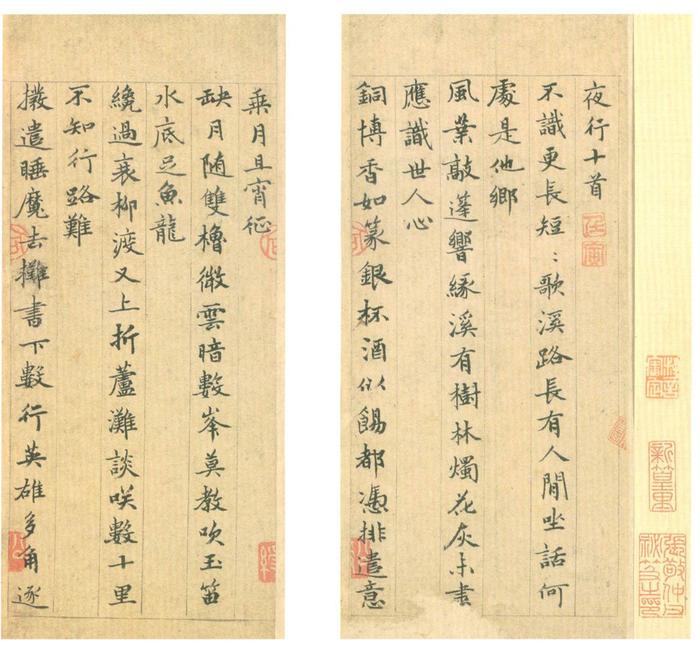 夜行十首
不識更長短〻歌溪路長有人閒坐話何
處是他鄉
風葉敲蓬響緣溪有樹林燭花灰未書
應識世人心
銅博香如篆銀杯酒似餳都憑排遣意
乘月且宵征
缺月随雙櫓微雲暗數峯莫教吹玉笛
水底足魚龍
纔過衰柳渡又上折蘆灘談咲數十里
不知行路難
撥遣睡魔去攤書下數行英雄多角逐